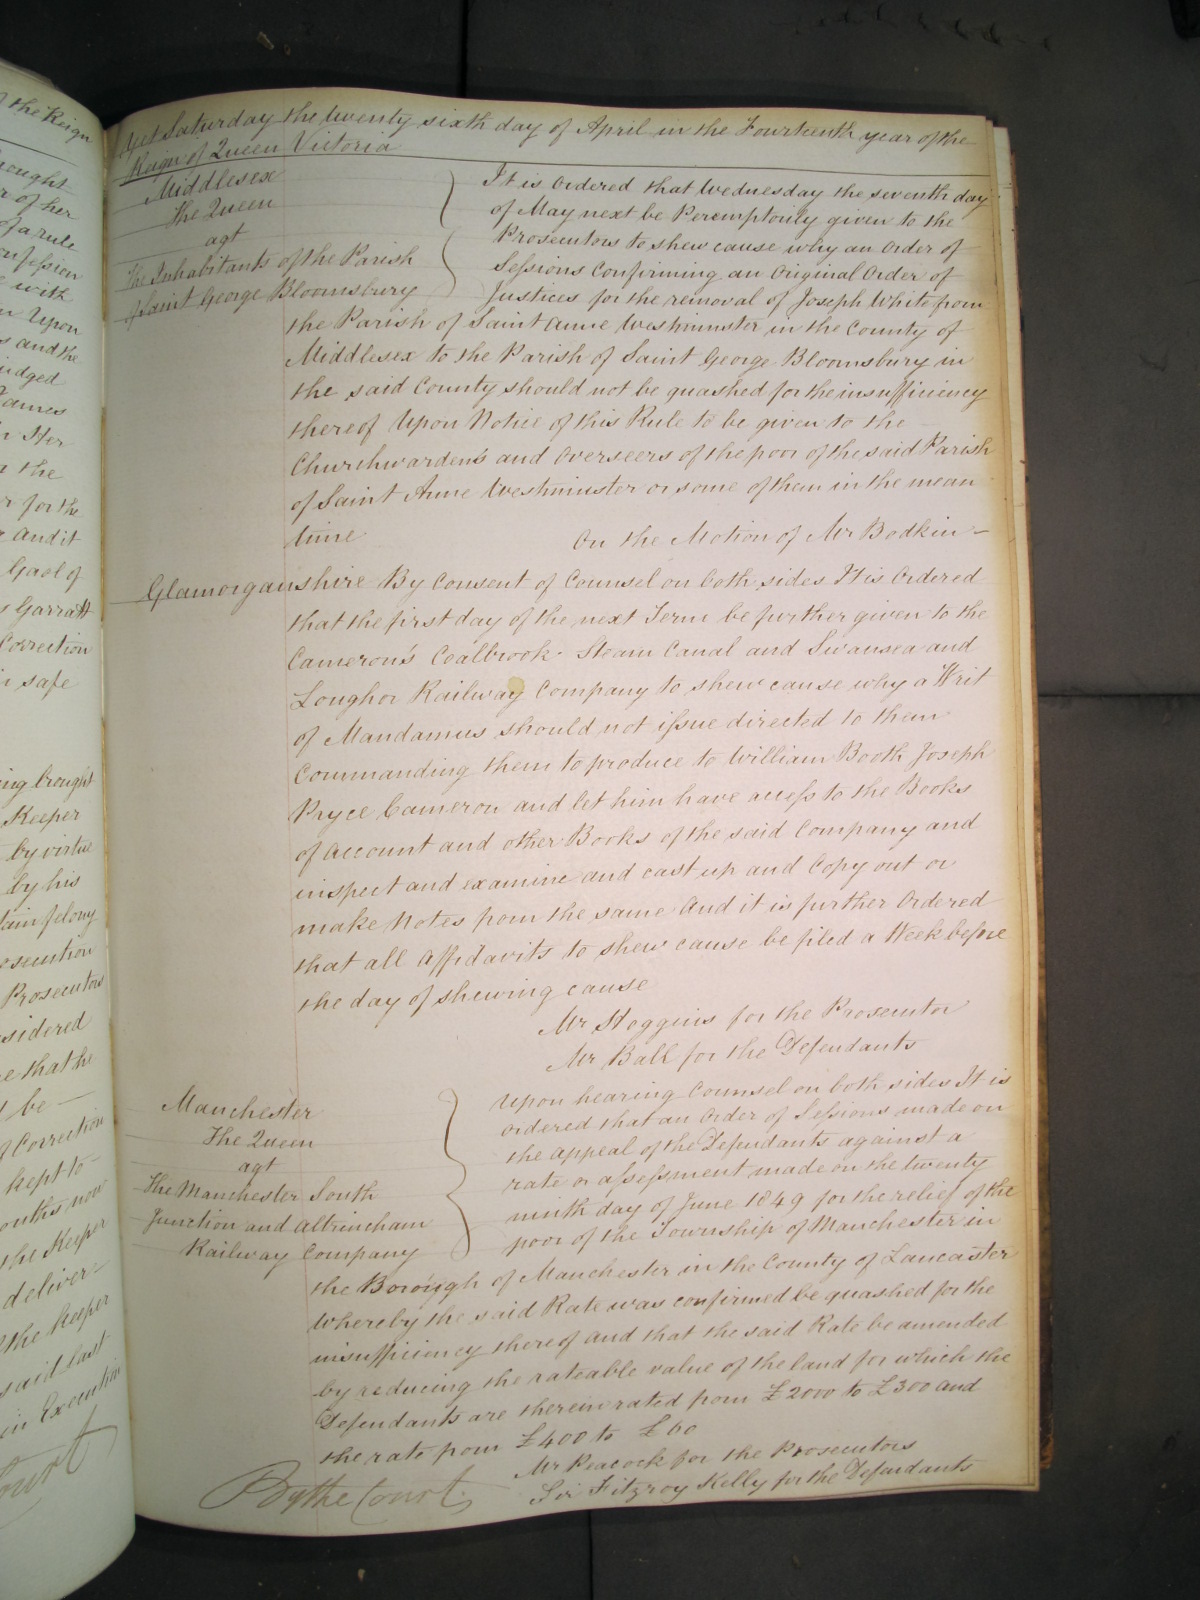 Yet Saturday the twenty sixth day of April in the Fourteenth year of the
Reign of Queen Victoria
Middlesex
The Queen
agt
The Inhabitants of the Parish
of Saint George Bloomsbury
It is Ordered that Wednesday the seventh day
of May next be Peremptorily given to the
Prosecutors to shew cause why an Order of
Sessions Confirming an Original Order of
Justices for the removal of Joseph White from
the Parish of Saint Anne Westminster in the County of
Middlesex to the Parish of Saint George Bloomsbury in
the said County should not be quashed for the insufficiency
thereof Upon Notice of this Rule to be given to the
Churchwardens and Overseers of the poor of the said Parish
of Saint Anne Westminster or some of them in the mean
time
On the Motion of Mr Bodkin
Glamorganshire By Consent of Counsel on both sides It is Ordered
that the first day of the next Term be further given to the
Cameron's Coalbrook Steam Canal and Swansea and
Loughor Railway Company to shew cause why a Writ
of Mandamus should not issue directed to them
Commanding them to produce to William Booth Joseph
Pryce Cameron and let him have access to the Books
of account and other Books of the said Company and
inspect and examine and cast up and Copy out or
make Notes from the same And it is further Ordered
that all Affidavits to shew cause be filed a Week before
the day of shewing cause
Mr Hoggins for the Prosecutor
Mr Ball for the Defendants
Manchester
The Queen
agt
The Manchester South
Junction and Altrincham
Railway Company
Upon hearing Counsel on both sides It is
ordered that an Order of Sessions made on
the appeal of the Defendants against a
rate or assessment made on the twenty
ninth day of June 1849 for the relief of the
poor of the Township of Manchester in
the Borough of Manchester in the County of Lancaster
whereby the said Rate was confirmed be quashed for the
insufficiency thereof and that the said Rate be amended
by reducing the rateable value of the land for which the
Defendants are therein rated from £2000 to £300 and
the rate from £400 to £60
Mr Peacock for the Prosecutors
Sir Fitzroy Kelly for the Defendants
By the Court